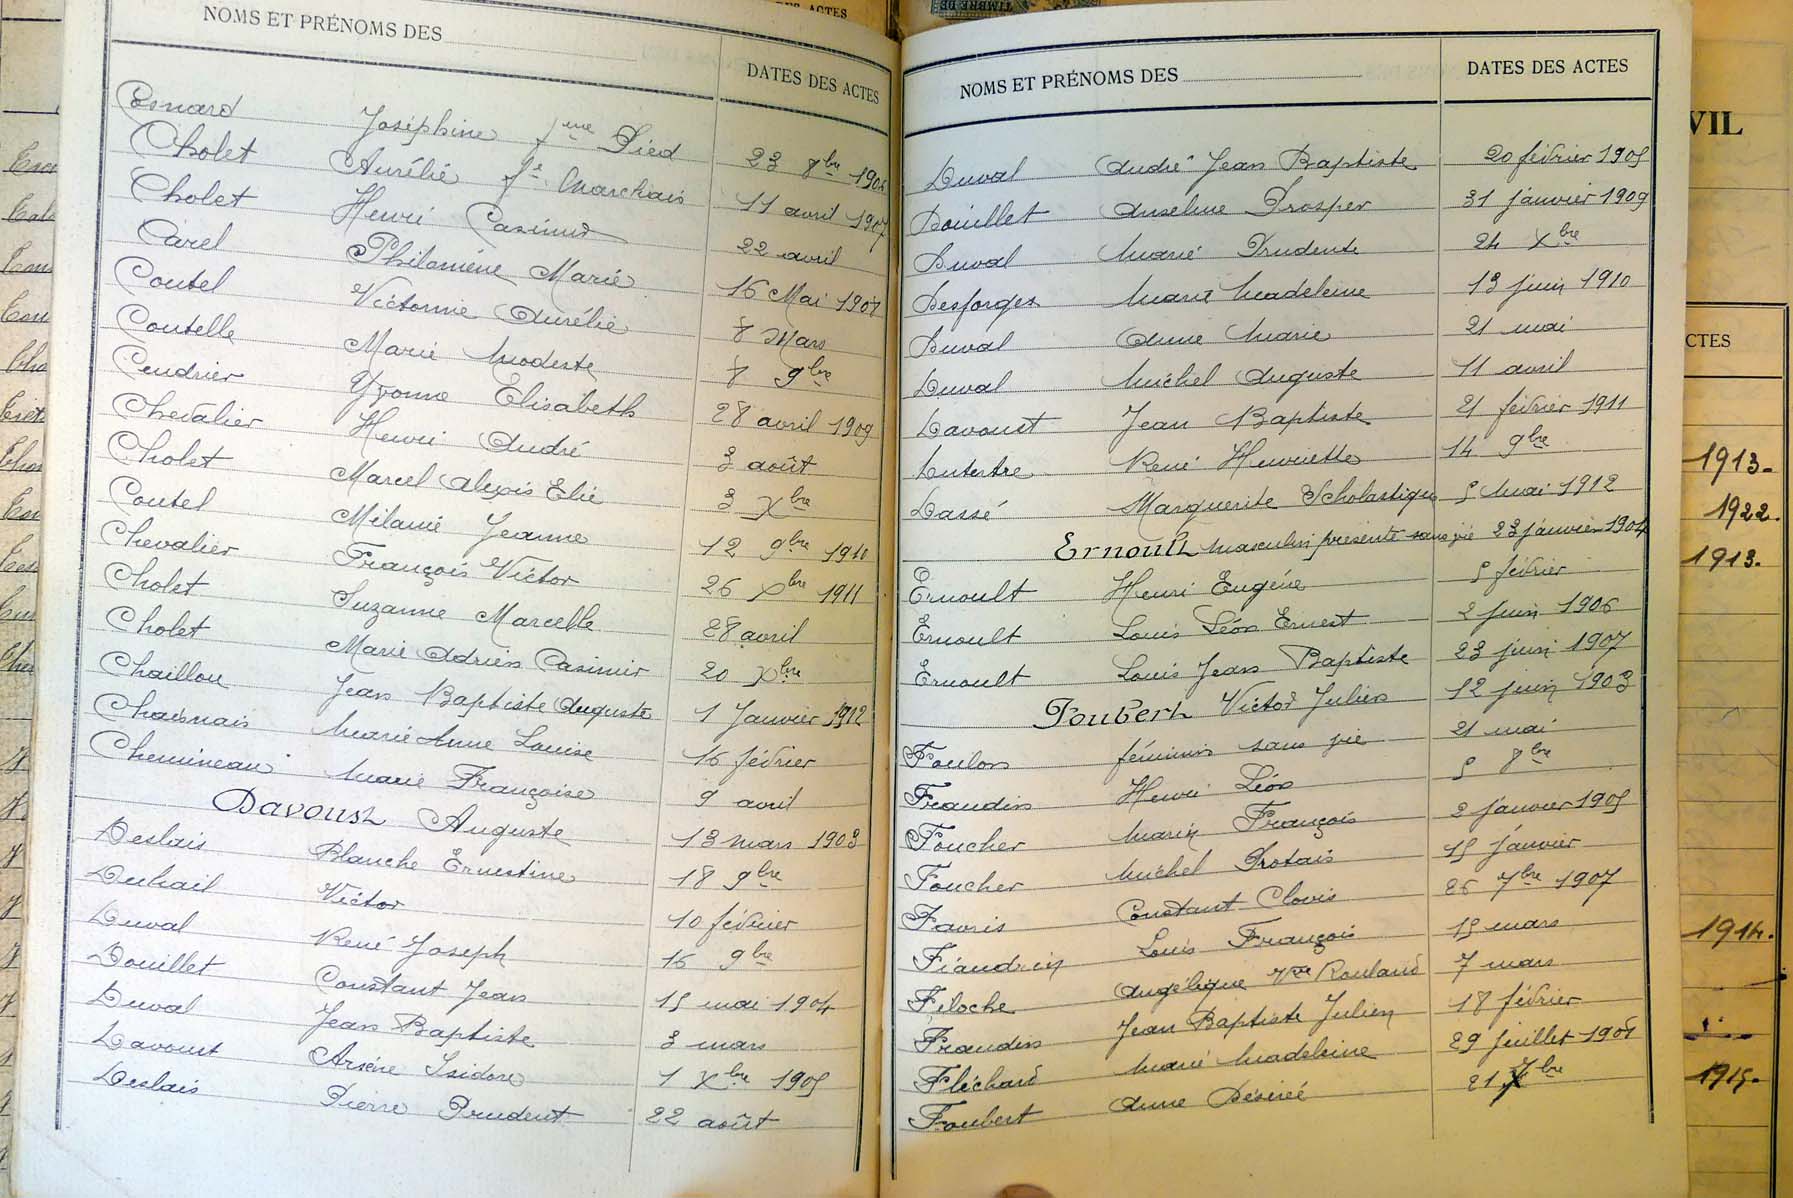 DES ACTES
TIMBRE DE
NOMS ET PRÉNOMS DES
DATES DES ACTES
Besnard Joséphine fme Pied 23 8bre 1906
Cholet Aurélie fe Marchais 11 avril 1907
Cholet Henri Casimir 22 avril
Carel Philomène Marie 16 Mai 1907
Coutel Victorine Aurélie 8 Mars
Coutelle Marie Modeste 8 9bre
Cendrier Yvonne Elisabeth 28 avril 1909
Chevalier Henri André 3 août
Cholet Marcel Alexis Elie 3 Xbre
Coutel Mélanie Jeanne 12 9bre 1910
Chevalier François Victor 26 Xbre 1911
Cholet Suzanne Marcelle 28 avril
Cholet Marie Adrien Casimir 20 Xbre
Chaillou Jean Baptiste Auguste 1 Janvier 1912
Chaisnais Marie Anne Louise 16 février
Chemineau Marie Françoise 9 avril
Davoust Auguste 13 mars 1903
Deslais Blanche Ernestine 18 9bre
Duhail Victor 10 février
Duval René Joseph 16 9bre
Douillet Constant Jean 15 mai 1904
Duval Jean Baptiste 3 mars
Davoust Arsène Isidore 1 Xbre 1905
Deslais Pierre Prudent 22 août
NOMS ET PRÉNOMS DES
DATES DES ACTES
Duval André Jean Baptiste 20 février 1905
Douillet Anselme Prosper 31 janvier 1909
Duval Marie Prudente 24 Xbre
Desforges Marie Madeleine 13 juin 1910
Duval Anne Marie 21 mai
Duval Michel Auguste 11 avril
Davoust Jean Baptiste 21 février 1911
Dutertre René Henriette 14 9bre
Dassé Marguerite Scholastique 5 Mai 1912
Ernoult masculin présenté sans vie 23 janvier 1904
Ernoult Henri Eugène 5 février
Ernoult Louis Léon Ernest 2 juin 1906
Ernoult Louis Jean Baptiste 23 juin 1907
Foubert Victor Julien 12 juin 1903
Foulon féminin sans vie 21 mai
Fraudin Henri Léon 5 8bre
Foucher Marin François 2 janvier 1905
Foucher Michel Protais 15 janvier
Favris Constant Clovis 26 7bre 1907
Fiaudrin Louis François 15 mars
Filoche Angélique Vve Rouland 7 mars
Fraudin Jean Baptiste Julien 18 février
Fléchard Marie Madeleine 29 juillet 1908
Foubert Anne Désirée 21 7bre
VIL
CTES
1913.
1922.
1913.
1914.
1915.